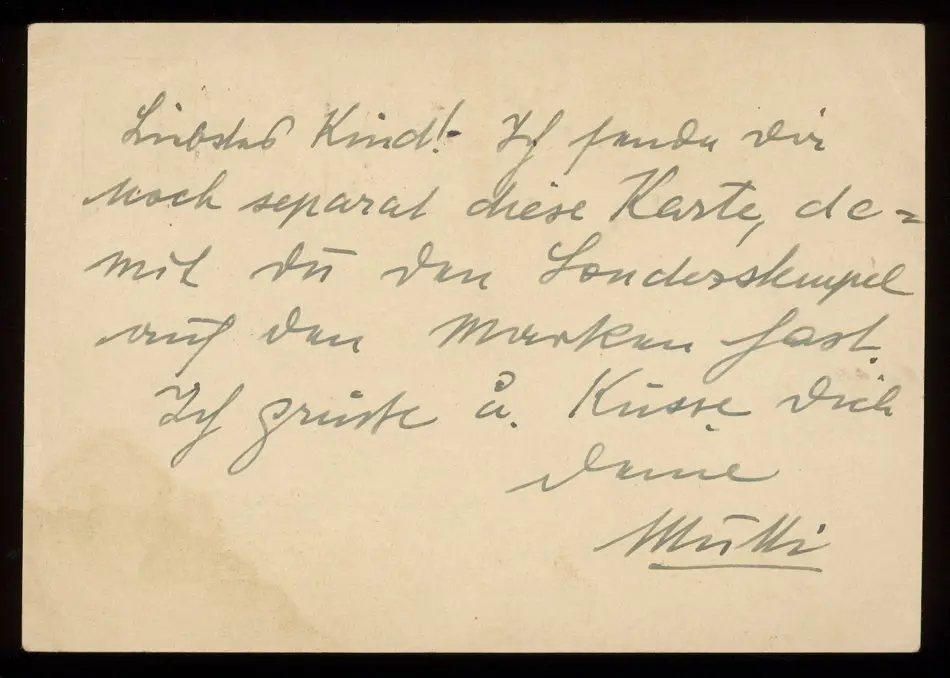 Liebstes Kind!- Ich sende Dir
noch separat diese Karte, da=
mit Du den Sonderstempel
auf den Marken hast.
Ich grüße u. Küsse Dich
Deine
Mutti